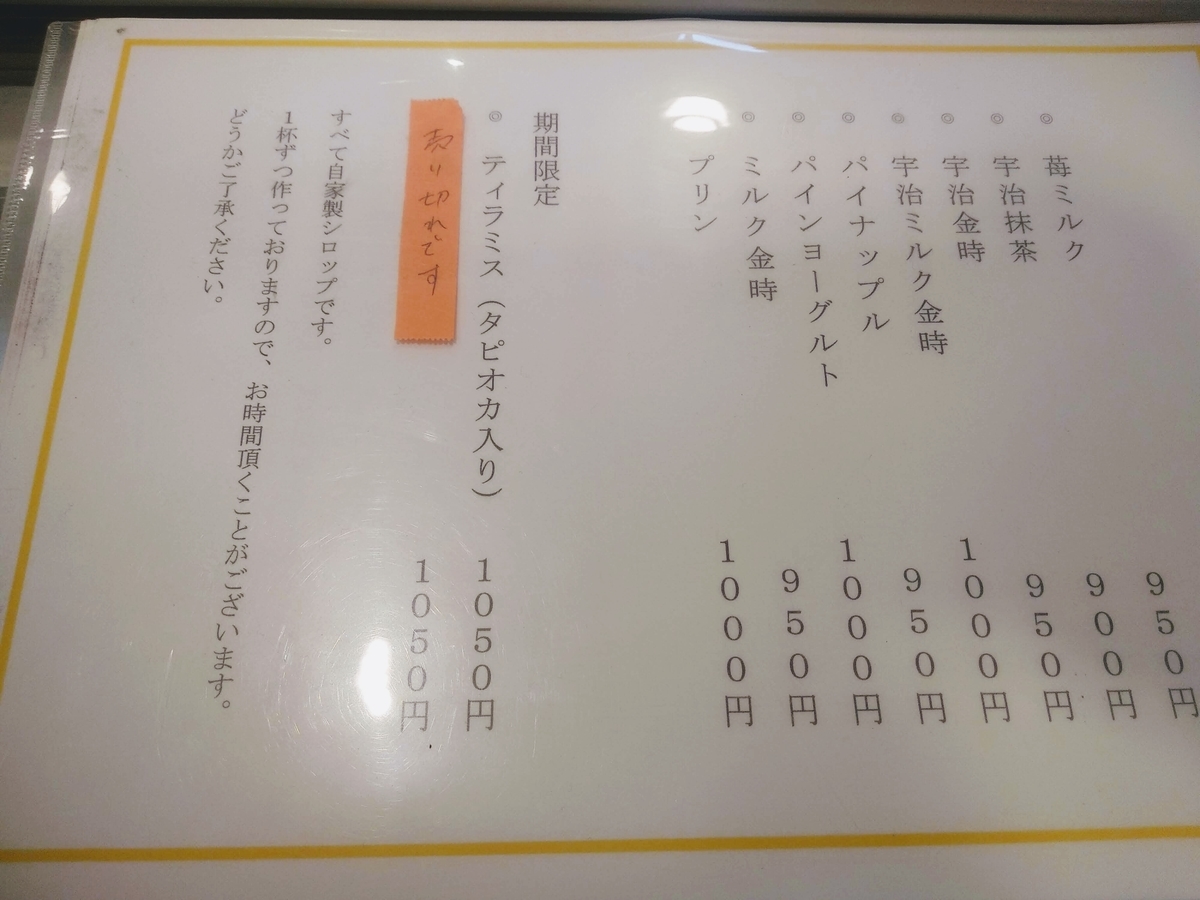 ◎ 苺ミルク 950円
◎ 宇治抹茶 900円
◎ 宇治金時 950円
◎ 宇治ミルク金時 1000円
◎ パイナップル 950円
◎ パインヨーグルト 1000円
◎ ミルク金時 950円
プリン 1000円
期間限定
◎ ティラミス（タピオカ入り） 1050円
売り切れです 1050円
すべて自家製シロップです。
1杯ずつ作っておりますので、お時間頂くことがございます。
どうかご了承ください。